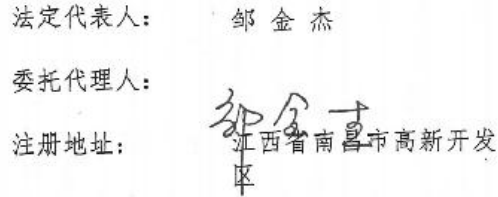 法定代表人： 邹金杰
委托代理人：
邹金杰
注册地址： 江西省南昌市高新开发
区